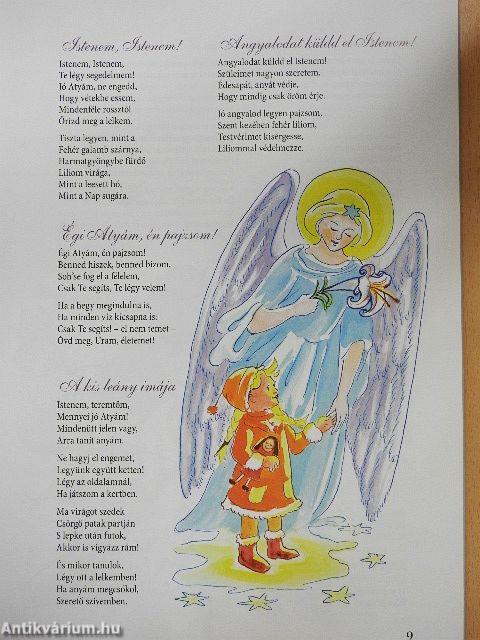 Istenem, Istenem!
Istenem, Istenem,
Te légy segedelmem!
Jó Atyám, ne engedd,
Hogy vétekbe essem,
Mindenféle rossztól
Őrizd meg a lelkem.
Tiszta legyen, mint a
Fehér galamb szárnya,
Harmatgyöngybe fürdő
Liliom virága,
Mint a leesett hó,
Mint a Nap sugára.
Égi Atyám, én pajzsom!
Égi Atyám, én pajzsom!
Benned hiszek, benned bízom,
Soh'se fog el a félelem,
Csak Te segíts, Te légy velem!
Ha a hegy megindulna is,
Ha minden víz kicsapna is:
Csak Te segíts! – el nem temet –
Óvd meg, Uram, életemet!
A kis leány imája
Istenem, teremtőm,
Mennyei jó Atyám!
Mindenütt jelen vagy,
Arra tanít anyám.
Ne hagyj el engemet,
Legyünk együtt ketten!
Légy az oldalamnál,
Ha játszom a kertben.
Ma virágot szedek
Csörgő patak partján
S lepke után futok,
Akkor is vigyázz rám!
És mikor tanulok,
Légy ott a lelkemben!
Ha anyám megcsókol,
Szerető szívemben.
Angyalodat küldd el Istenem!
Angyalodat küldd el Istenem!
Szüleimet nagyon szeretem.
Édesapát, anyát védje,
Hogy mindig csak öröm érje.
Jó angyalod legyen pajzsom,
Szent kezében fehér liliom,
Testvérimet kísérgesse,
Liliommal védelmezze.
9
Antikvárium.hu